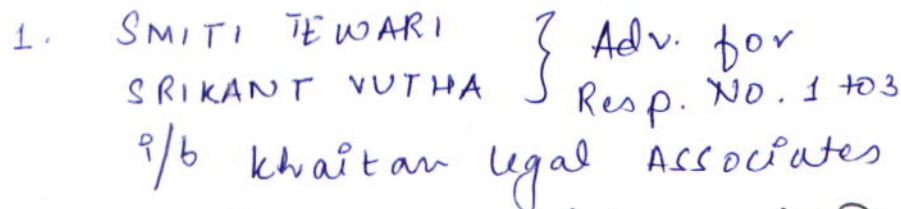 1. SMITI TEWARI } Adv. for
SRIKANT VUTHA } Resp. No. 1 to 3
i/b Khaitan Legal Associates